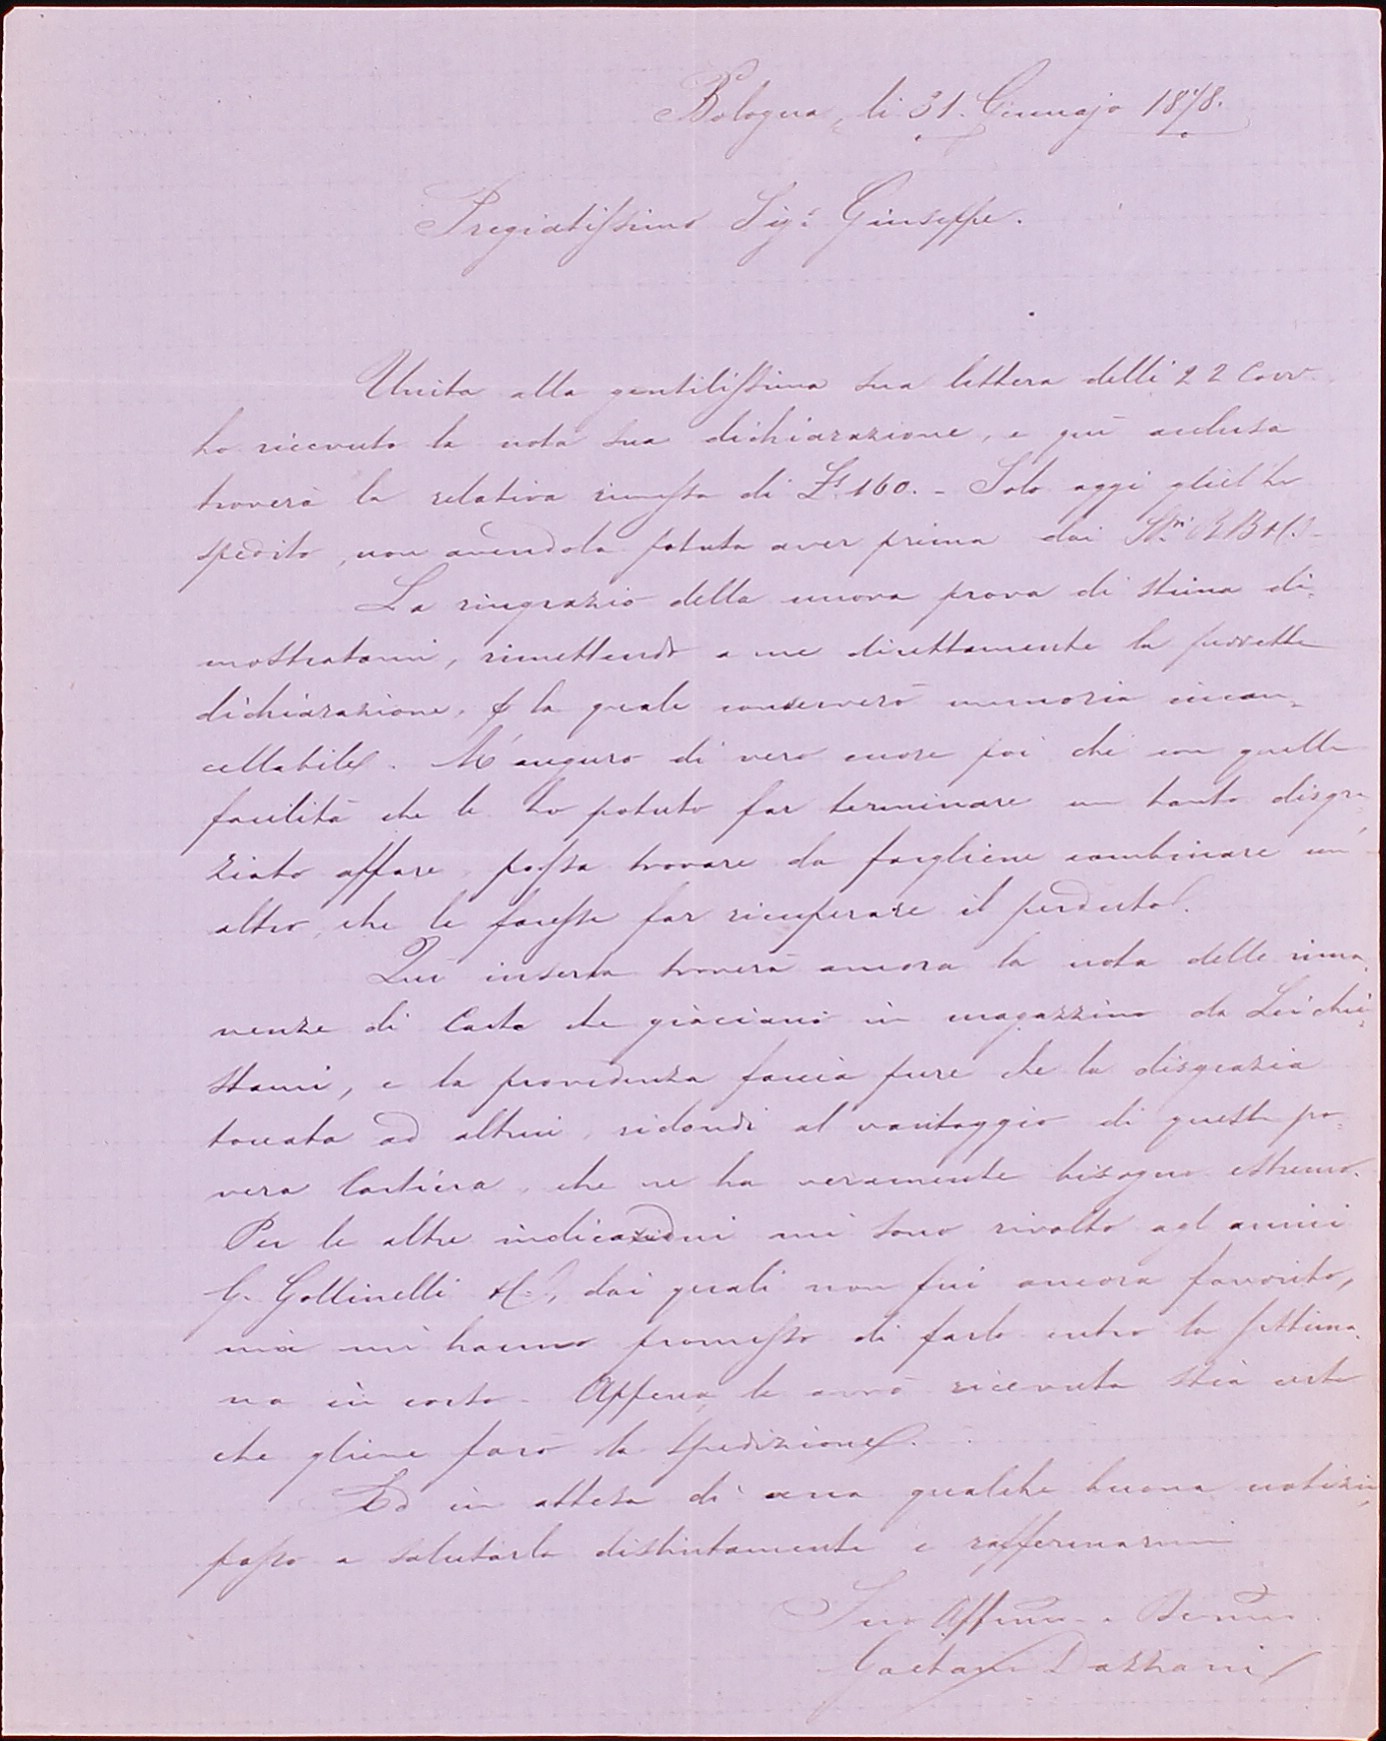 Bologna, li 31. Gennajo 1878.
Pregiatissimo Sigr. Giuseppe.
Unita alla gentilissima sua lettera delli 22 Corr.
ho ricevuto la nota sua dichiarazione, e quì acclusa
troverà la relativa rimessa di L. 160. - Solo oggi gliel'ho
spedito, non avendola potuta aver prima dai
La ringrazio della nuova prova di stima di-
mostratami, rimettendo a me direttamente la suddetta
dichiarazione, la quale conserverò memoria incan-
cellabile. M'auguro di vero cuore poi che con quella
facilità che le ho potuto far terminare un tanto disgra-
ziato affare, possa trovare da fargliene combinare un
altro, che le facesse far ricuperare il perduto.
Qui inserta troverà ancora la nota delle rima-
nenze di Carta che giaciano in magazzino da Lei chie-
stami, e la providenza faccia pure che la disgrazia
toccata ad altrui, ridondi al vantaggio di questa po-
vera Cartiera, che ne ha veramente bisogno estremo.
Per le altre indicazioni mi sono rivolto agl'amici
G. Gollinelli & C., dai quali non fui ancora favorito,
ma mi hanno promesso di farlo entro la settima-
na in corso. Appena le avrò ricevute stia certo
che gliene farò la spedizione.
Ed in attesa di una qualche buona notizia,
passo a salutarla distintamente e raffermarmi
Suo Affmo
Gaetano Dazzani